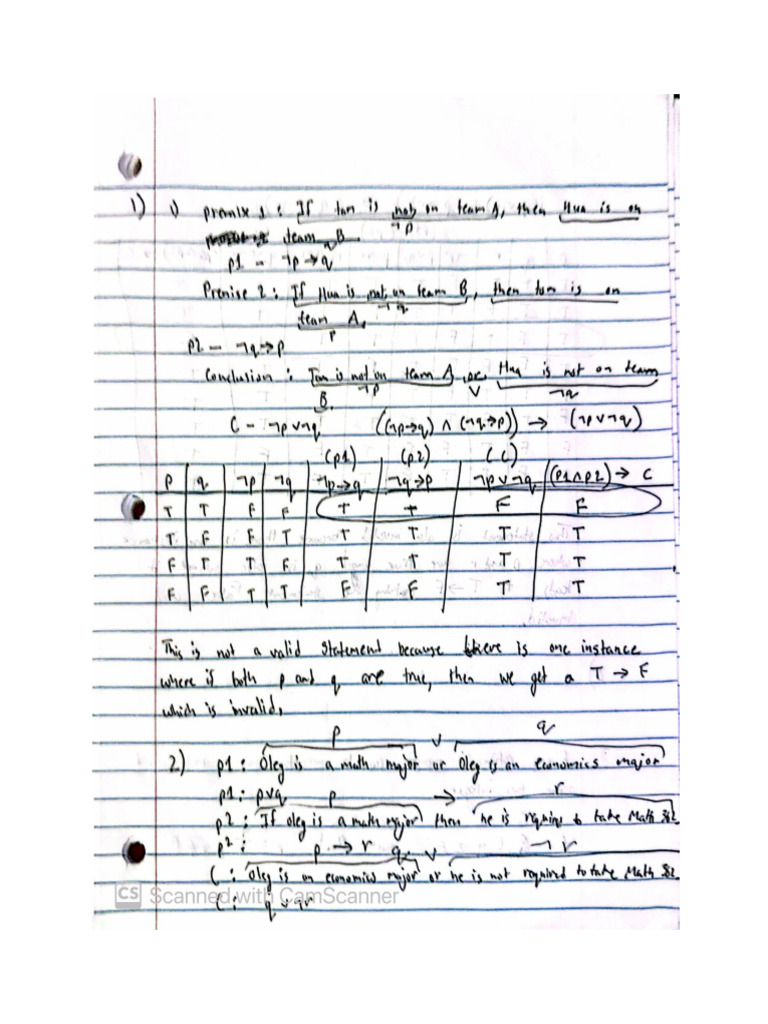 1) 1) Premise 1 : If tom is not on team A, then Hua is on
¬p
team B
q
p1 – ¬p → q
Premise 2 : If Hua is not on team B, then tom is on
¬q
team A.
p
p2 – ¬q → p
Conclusion : Tom is not on team A, or, Hua is not on team
¬p ∨ ¬q
B.
C – ¬p ∨ ¬q ((¬p→q) ∧ (¬q→p)) → (¬p ∨ ¬q)
(p1) (p2) (C)
p q ¬p ¬q ¬p→q ¬q→p ¬p∨¬q (p1∧p2) → C
T T F F T T F F
T F F T T T T T
F T T F T T T T
F F T T F F T T
This is not a valid statement because there is one instance
where if both p and q are true, then we get a T → F
which is invalid.
p ∨ q
2) p1 : Oleg is a math major or Oleg is an economics major
p1 : p∨q p → r
p2 : If oleg is a math major then he is required to take Math 362
p2 : p → r q ∨ ¬r
C : Oleg is an economics major or he is not required to take Math 362
C : q ∨ ¬r
CS Scanned with CamScanner